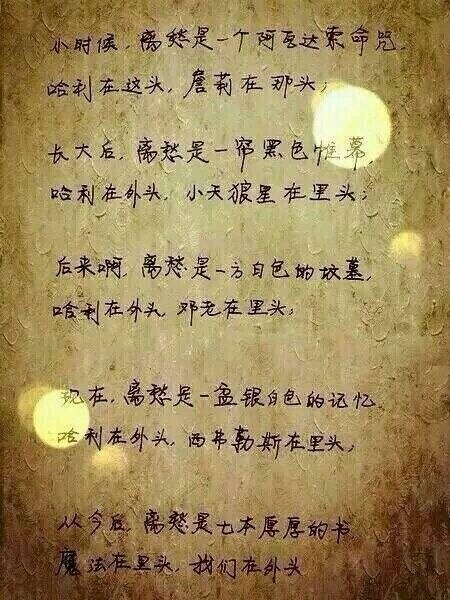 小时候,离愁是一个阿瓦达索命咒,
哈利在这头,詹莉在那头;
长大后,离愁是一帘黑色帷幕,
哈利在外头,小天狼星在里头;
后来啊,离愁是一方白色的坟墓,
哈利在外头,邓老在里头;
现在,离愁是一盆银白色的记忆
哈利在外头,西弗勒斯在里头;
从今后,离愁是七本厚厚的书
魔法在里头,我们在外头